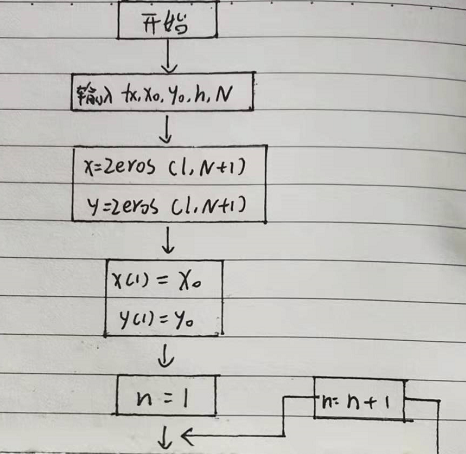 开始
输入 fx, x₀, y₀, h, N
x=zeros (1, N+1)
y=zeros (1, N+1)
x(1) = x₀
y(1) = y₀
n = 1
n= n+1